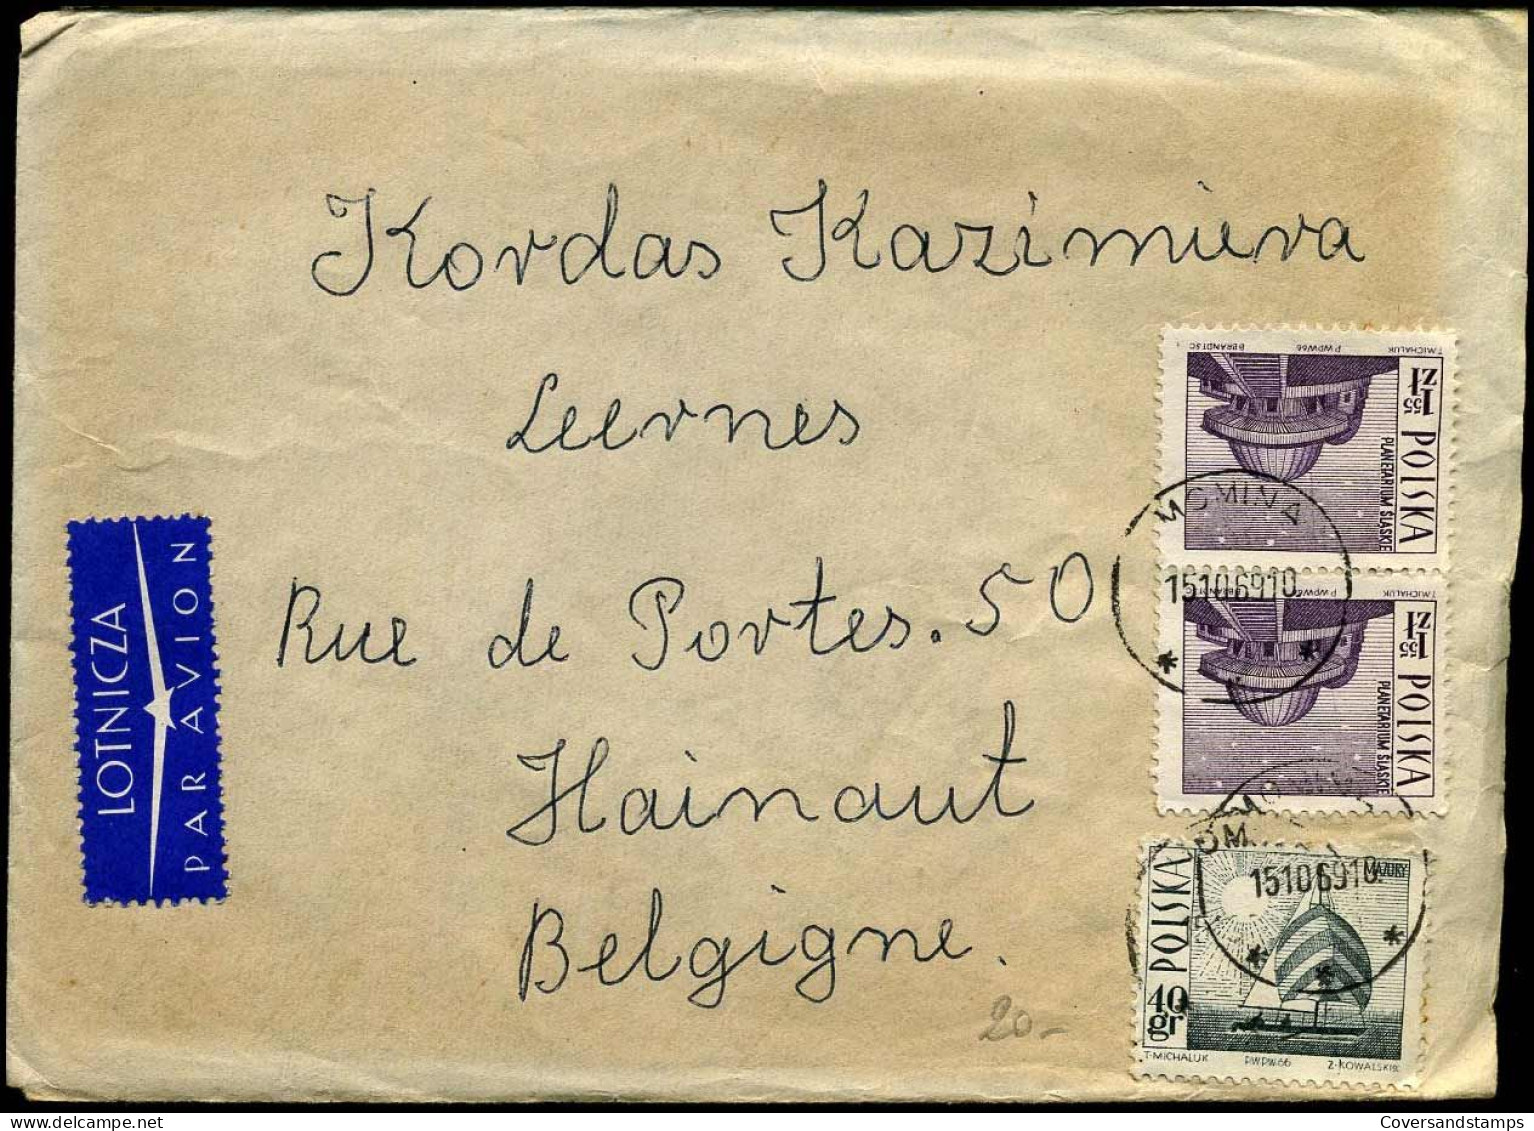 Kordas Kazimiera
Leernes
Rue de Portes. 50
Hainaut
Belgigne.
20-
LOTNICZA
PAR AVION
T.MICHALUK P.W.P.W.66 B.BRANDT SC.
1 55 ZŁ POLSKA
PLANETARIUM ŚLĄSKIE
MOMINA
15106910
T.MICHALUK P.W.P.W.66 B.BRANDT SC.
1 55 ZŁ POLSKA
PLANETARIUM ŚLĄSKIE
15106910
MAZURY
POLSKA
40 gr
T.MICHALUK P.W.P.W.66 Z.KOWALSKI SC.
CoversandStamps